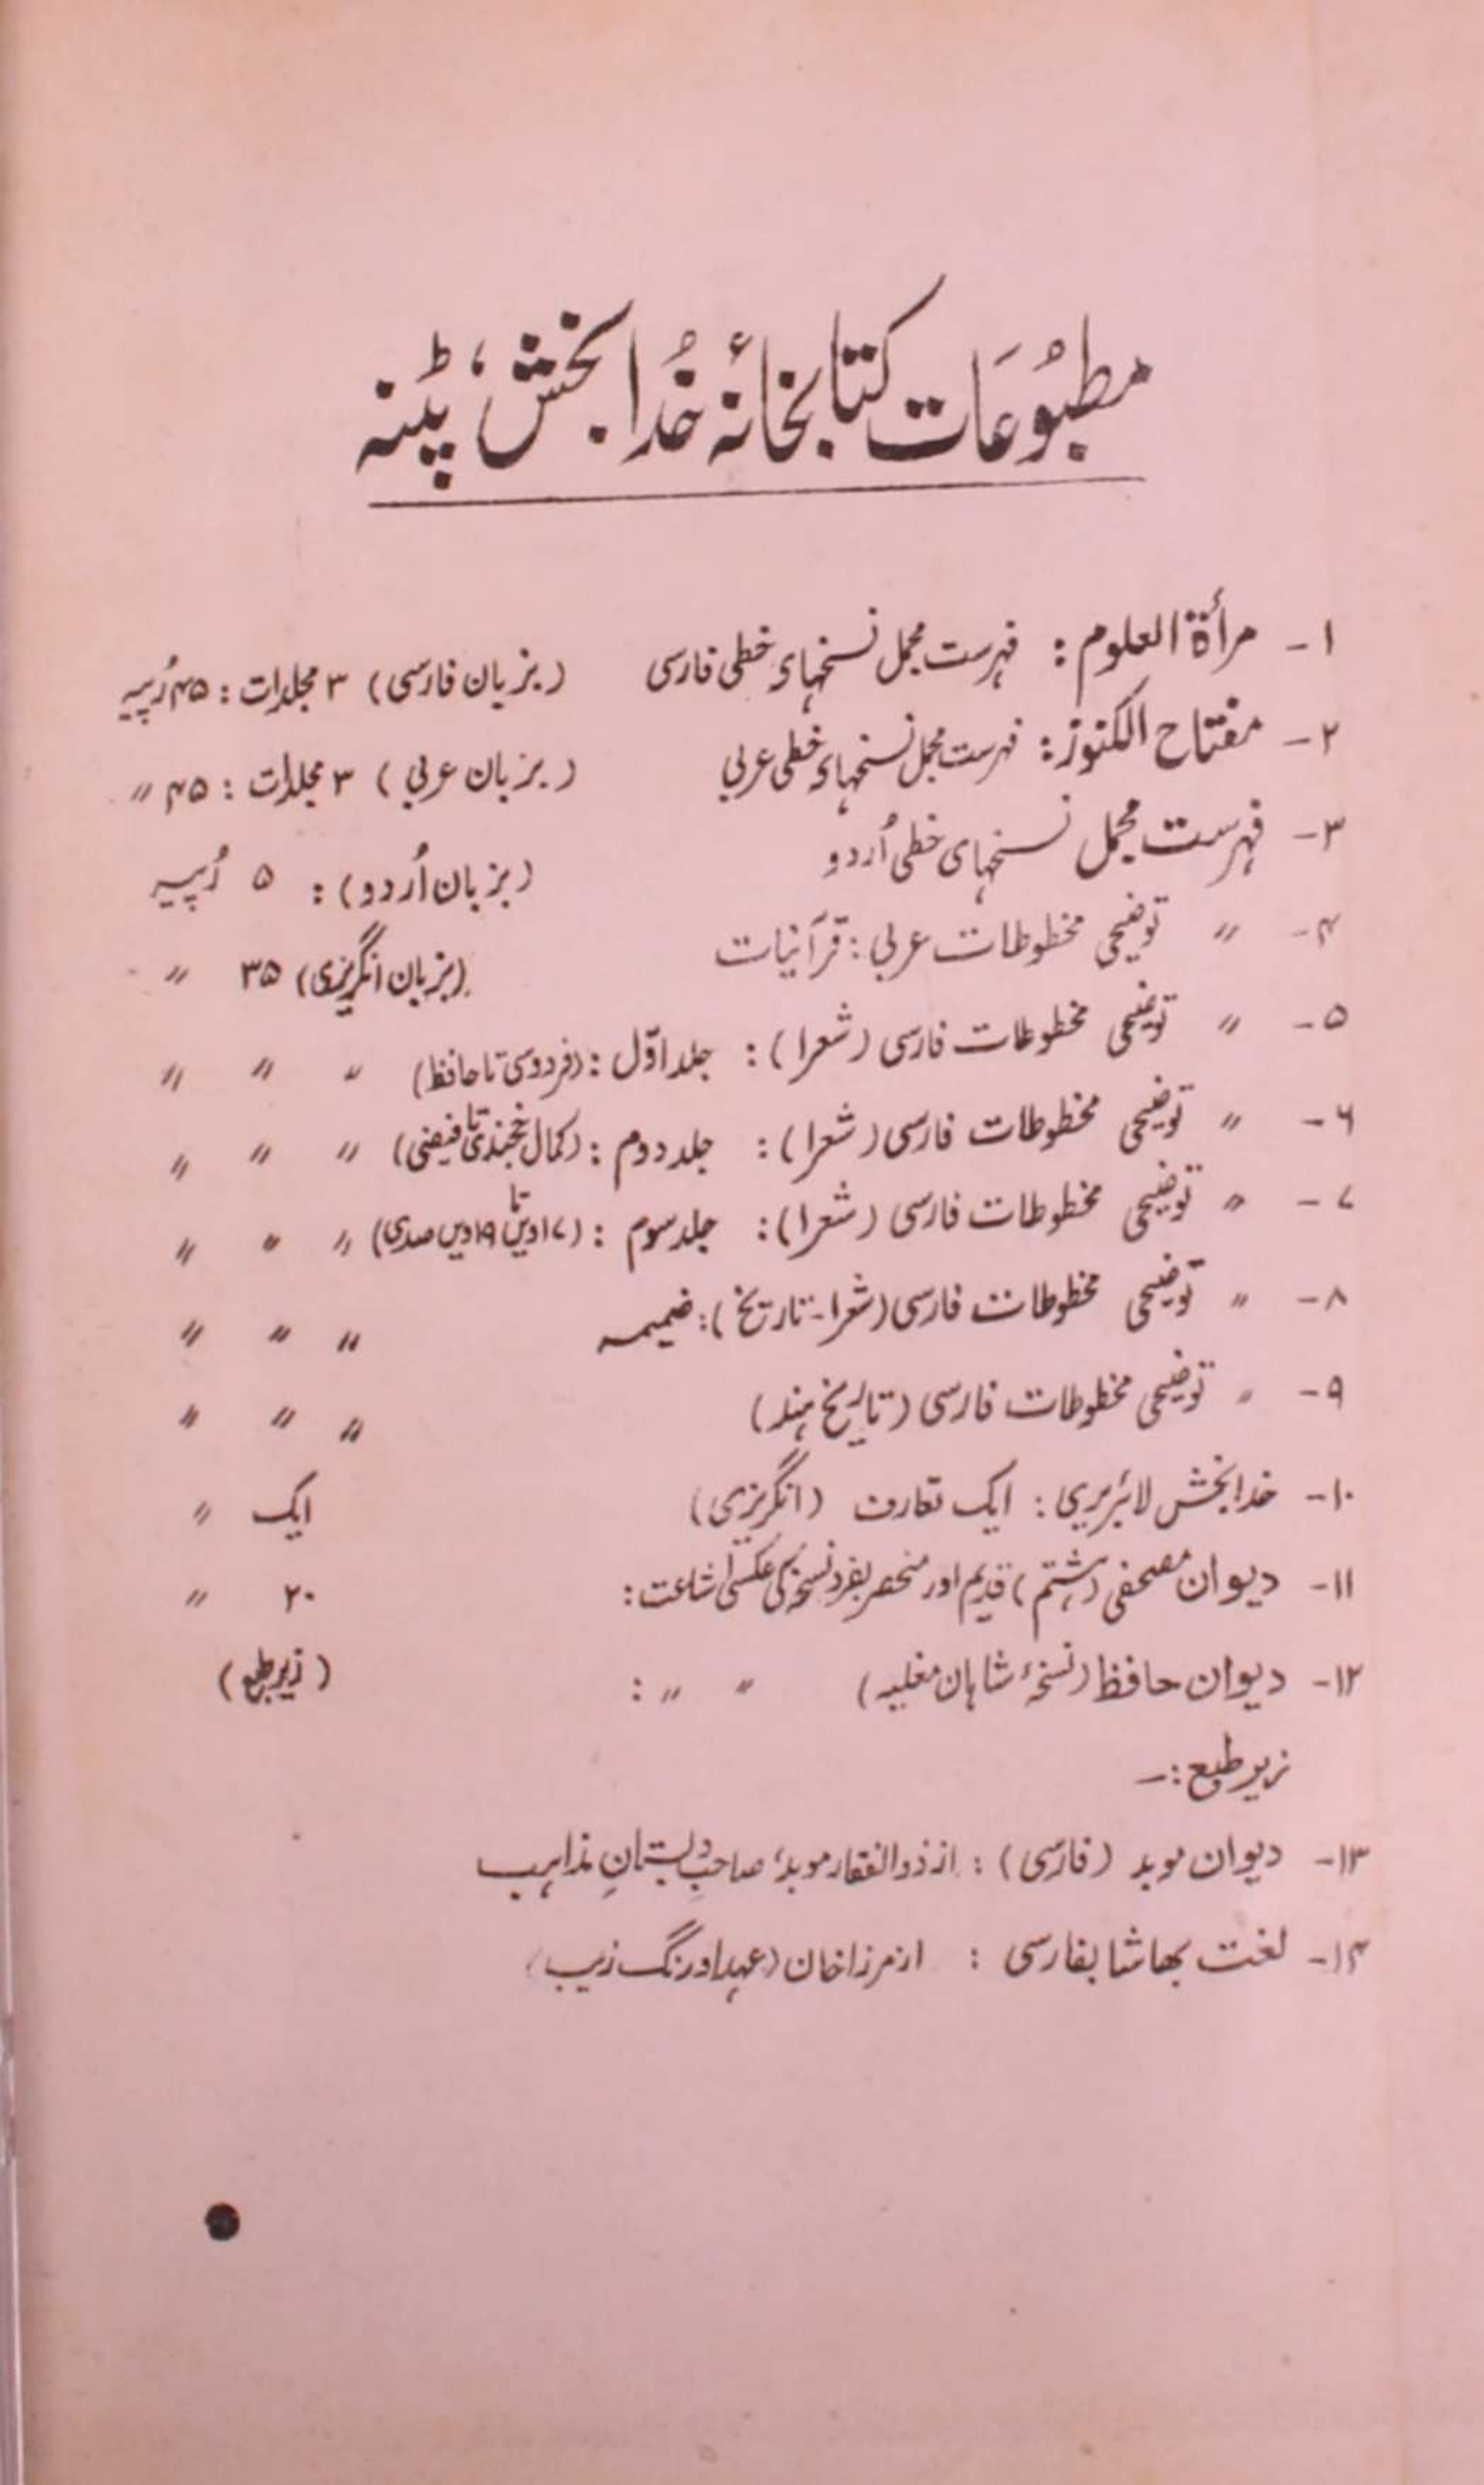 مطبُوعَات کتابخانۂ خُدا بخش، پٹنہ
۱- مرأة العلوم : فہرست مجمل نسخہای خطی فارسی (بزبان فارسی) ۳ مجلدات : ۴۵ رُپیہ
۲- مفتاح الکنوز : فہرست مجمل نسخہای خطی عربی (بزبان عربی) ۳ مجلدات : ۴۵ 〃
۳- فہرست مجمل نسخہای خطی اُردو (بزبان اُردو) : ۵ رُپیہ
۴- 〃 توضیحی مخطوطات عربی : قرآنیات (بزبان انگریزی) ۳۵ 〃
۵- 〃 توضیحی مخطوطات فارسی (شعرا) : جلد اوّل : (فردوسی تا حافظ) 〃 〃 〃
۶- 〃 توضیحی مخطوطات فارسی (شعرا) : جلد دوم : (کمال خجندی تا فیضی) 〃 〃 〃
۷- 〃 توضیحی مخطوطات فارسی (شعرا) : جلد سوم : (۱۷ ویں تا ۱۹ ویں صدی) 〃 〃 〃
۸- 〃 توضیحی مخطوطات فارسی (شعرا - تاریخ) : ضمیمہ 〃 〃 〃
۹- 〃 توضیحی مخطوطات فارسی (تاریخ ہند) 〃 〃 〃
۱۰- خدا بخش لائبریری : ایک تعارف (انگریزی) ایک 〃
۱۱- دیوان مصحفی (ہشتم) قدیم اور منحصر بفرد نسخہ کی عکسی اشاعت : ۲۰ 〃
۱۲- دیوان حافظ (نسخۂ شاہان مغلیہ) 〃 〃 : (زیر طبع)
زیر طبع :-
۱۳- دیوان موبد (فارسی) : از ذوالفقار موبد، صاحبِ دبستانِ مذاہب
۱۴- لغت بھاشا بفارسی : از مرزا خان (عہد اورنگ زیب)